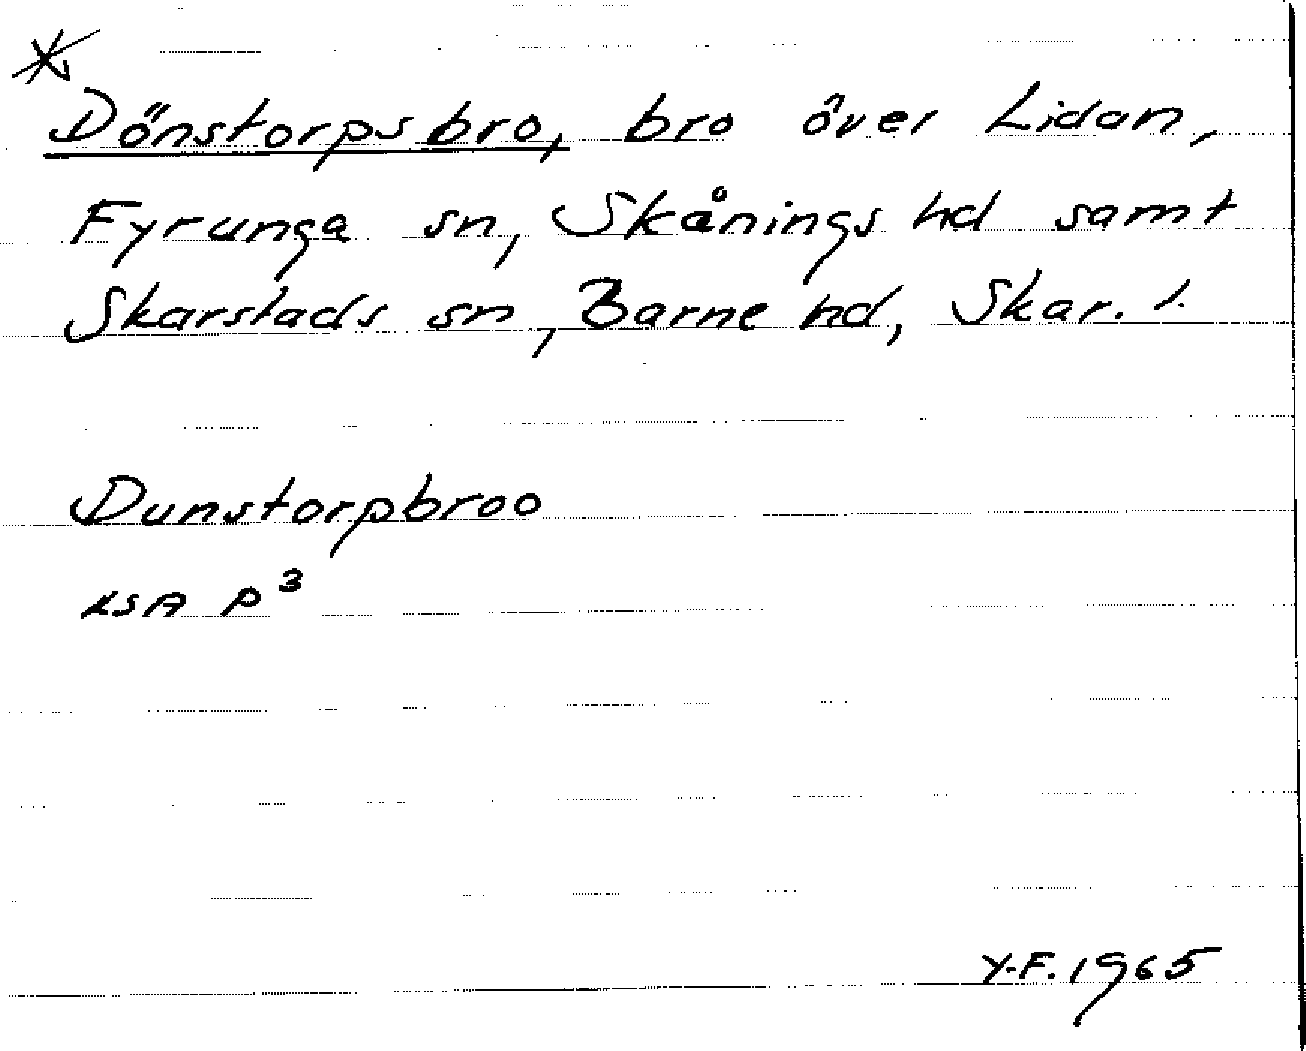 *
Dönstorpsbro, bro över Lidan,
Fyrunga sn, Skånings hd samt
Skarstads sn, Barne hd, Skar. l.
Dunstorpbroo
LSA P³
Y.F. 1965